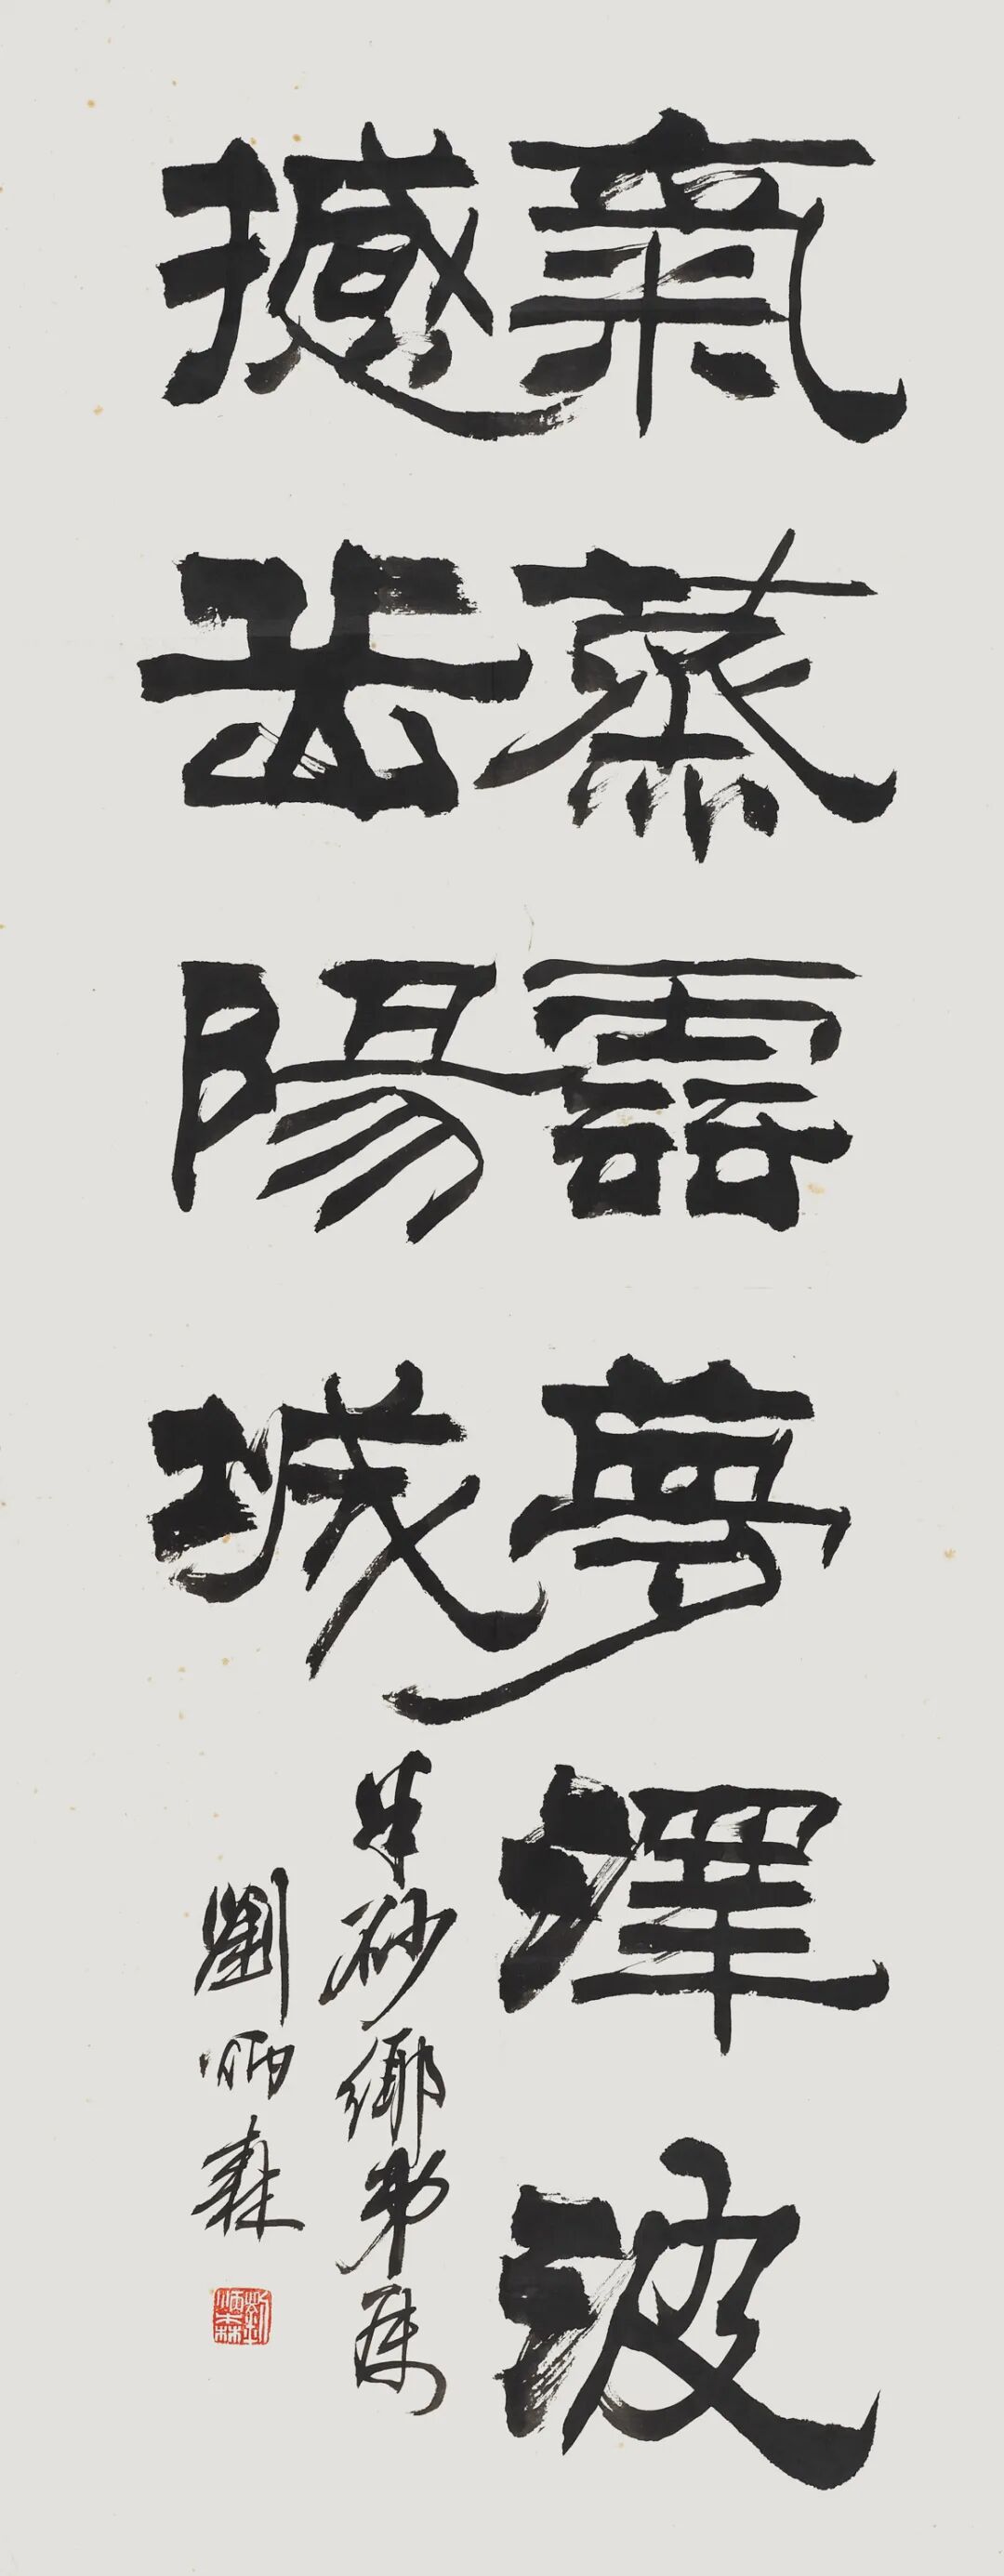 氣蒸雲夢澤波
撼岳陽城
砂鄉弟属
劉炳森
劉炳森